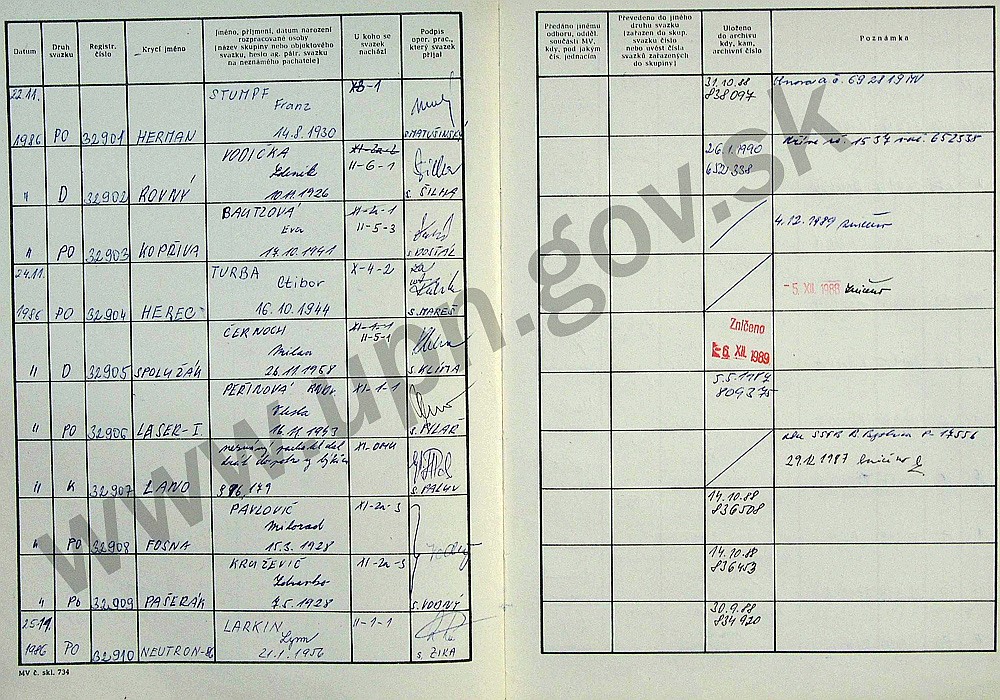 Datum
Druh svazku
Registr. číslo
Krycí jméno
Jméno, příjmení, datum narození
rozpracované osoby
(název skupiny nebo objektového
svazku, heslo ag. pátr. svazku
na neznámého pachatele)
U koho se
svazek
nachází
Podpis
oper. prac.,
který svazek
přijal
Předáno jinému
odboru, odděl.
součásti MV,
kdy, pod jakým
čís. jednacím
Převedeno do jiného
druhu svazku
(zařazen do skup.
svazku číslo
nebo uvést čísla
svazků zařazených
do skupiny)
Uloženo
do archivu
kdy, kam,
archivní číslo
Poznámka
22.11. STUMPF XI-1 31.10.88 69 2819 MV
Franz 838097
1986 PO 32901 HERMAN 14.8.1930 s. MATUŠINSKÝ
VODIČKA 26.1.1990
Zdeněk II-6-1 652338
" D 32902 ROVNÝ 10.11.1926 s. ŠILHA
BAUTZOVÁ XI-2a-1 4.12.1989 zničeno
Eva II-5-3
" PO 32903 KOPŘIVA 17.10.1941 s. DOSTÁL
24.11. TURBA X-4-2 -5. XII. 1989 zničeno
Ctibor
1986 PO 32904 HEREC 16.10.1944 s. MAREŠ
ČERNOCH XI-1-1 Zničeno
Milan II-5-1 -6. XII. 1989
" D 32905 SPOLUŽÁK 26.11.1958 s. KLÍMA
PEŘINOVÁ XI-1-1 5.5.1987
Vlasta 809375
" PO 32906 LASER-I. 16.11.1953 s. PILAŘ
neznámý 29.12.1987 zničeno
" K 32907 LANO
PAVLOVIČ XI-2a-3 14.10.88
Milorad 836508
" PO 32908 FOSNA 15.3.1928
KRUŽEVIČ XI-2a-3 14.10.88
836453
" PO 32909 PAŠERÁK 7.5.1928 s. VODNÝ
25.11. LARKIN II-1-1 30.9.88
Lynn 834920
1986 PO 32910 NEUTRON-86 21.1.1956 s. ZIKA
MV č. skl. 734
www.upn.gov.sk